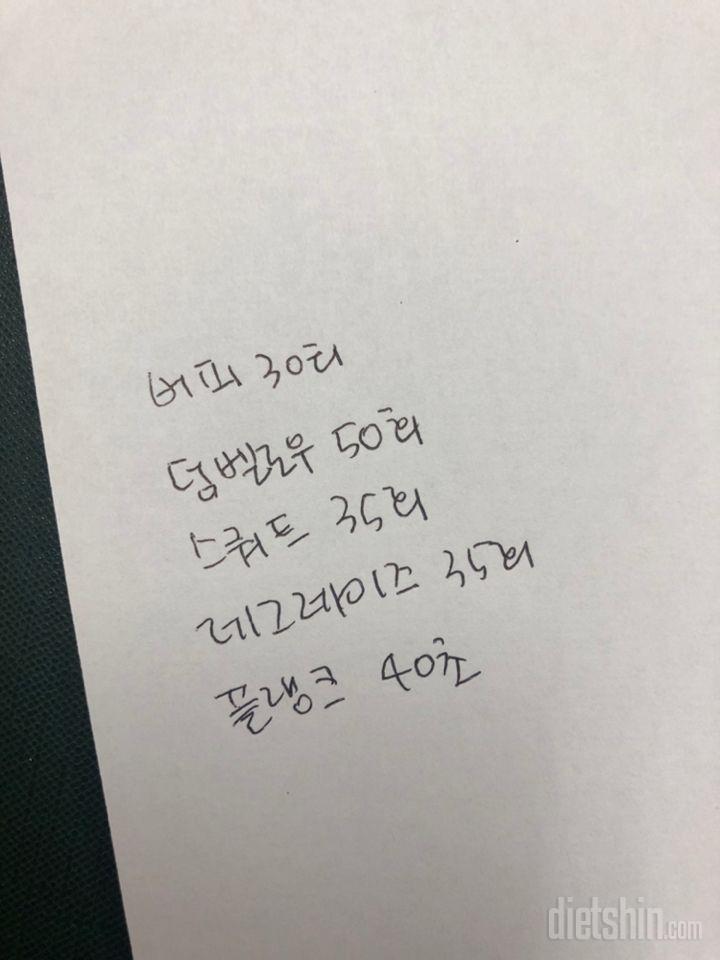 버피 30회
덤벨로우 50회
스쿼트 35회
레그레이즈 35회
플랭크 40초
dietshin.com